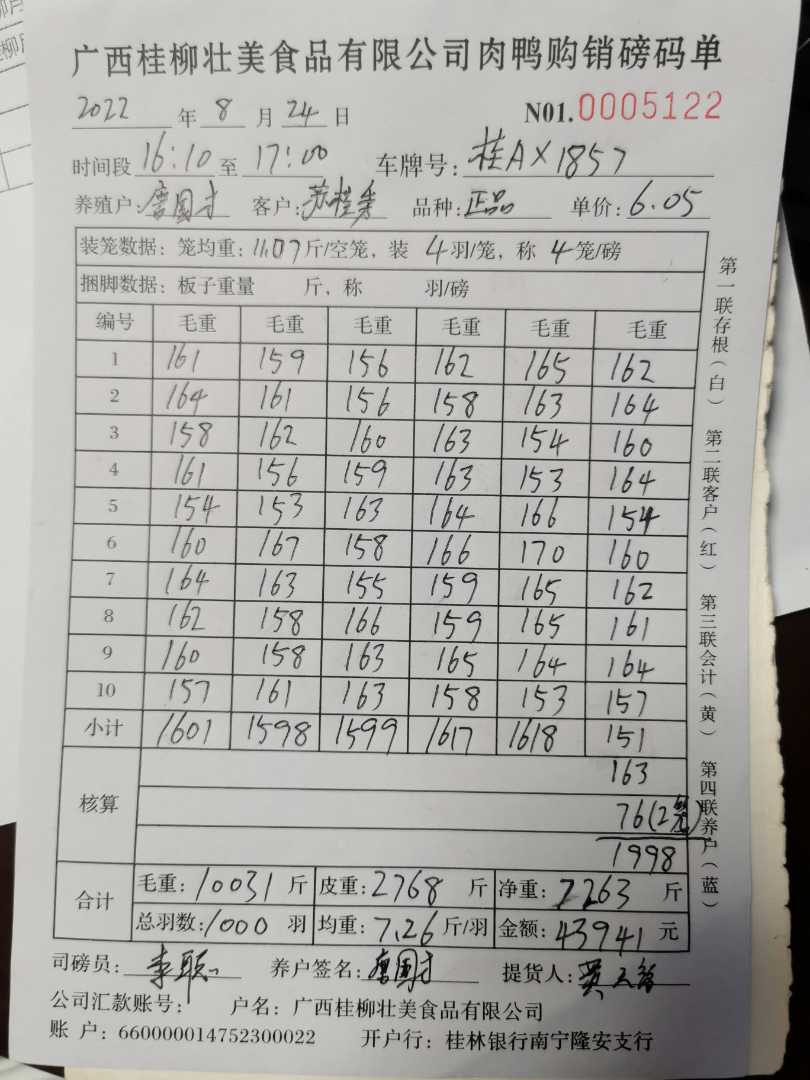 广西桂柳壮美食品有限公司肉鸭购销磅码单
2022 年 8 月 24 日 N01.0005122
时间段 16:10 至 17:00 车牌号: 桂AX1857
养殖户: 唐国才 客户: 苏桂 品种: 正品 单价: 6.05
装笼数据: 笼均重: 11.07斤/空笼, 装 4羽/笼, 称 4笼/磅
捆脚数据: 板子重量 斤, 称 羽/磅
编号 毛重 毛重 毛重 毛重 毛重 毛重
1 161 159 156 162 165 162
2 164 161 156 158 163 164
3 158 162 160 163 154 160
4 161 156 159 163 153 164
5 154 153 163 164 166 154
6 160 167 158 166 170 160
7 164 163 155 159 165 162
8 162 158 166 159 165 161
9 160 158 163 165 164 164
10 157 161 163 158 153 157
小计 1601 1598 1599 1617 1618 151
核算 163
76(2笼)
1998
合计 毛重: 10031 斤 皮重: 2768 斤 净重: 7263 斤
总羽数: 1000 羽 均重: 7.26 斤/羽 金额: 43941 元
司磅员: 养户签名: 唐国才 提货人:
公司汇款账号: 户名: 广西桂柳壮美食品有限公司
账 户: 660000014752300022 开户行: 桂林银行南宁隆安支行
第一联存根(白) 第二联客户(红) 第三联会计(黄) 第四联养户(蓝)